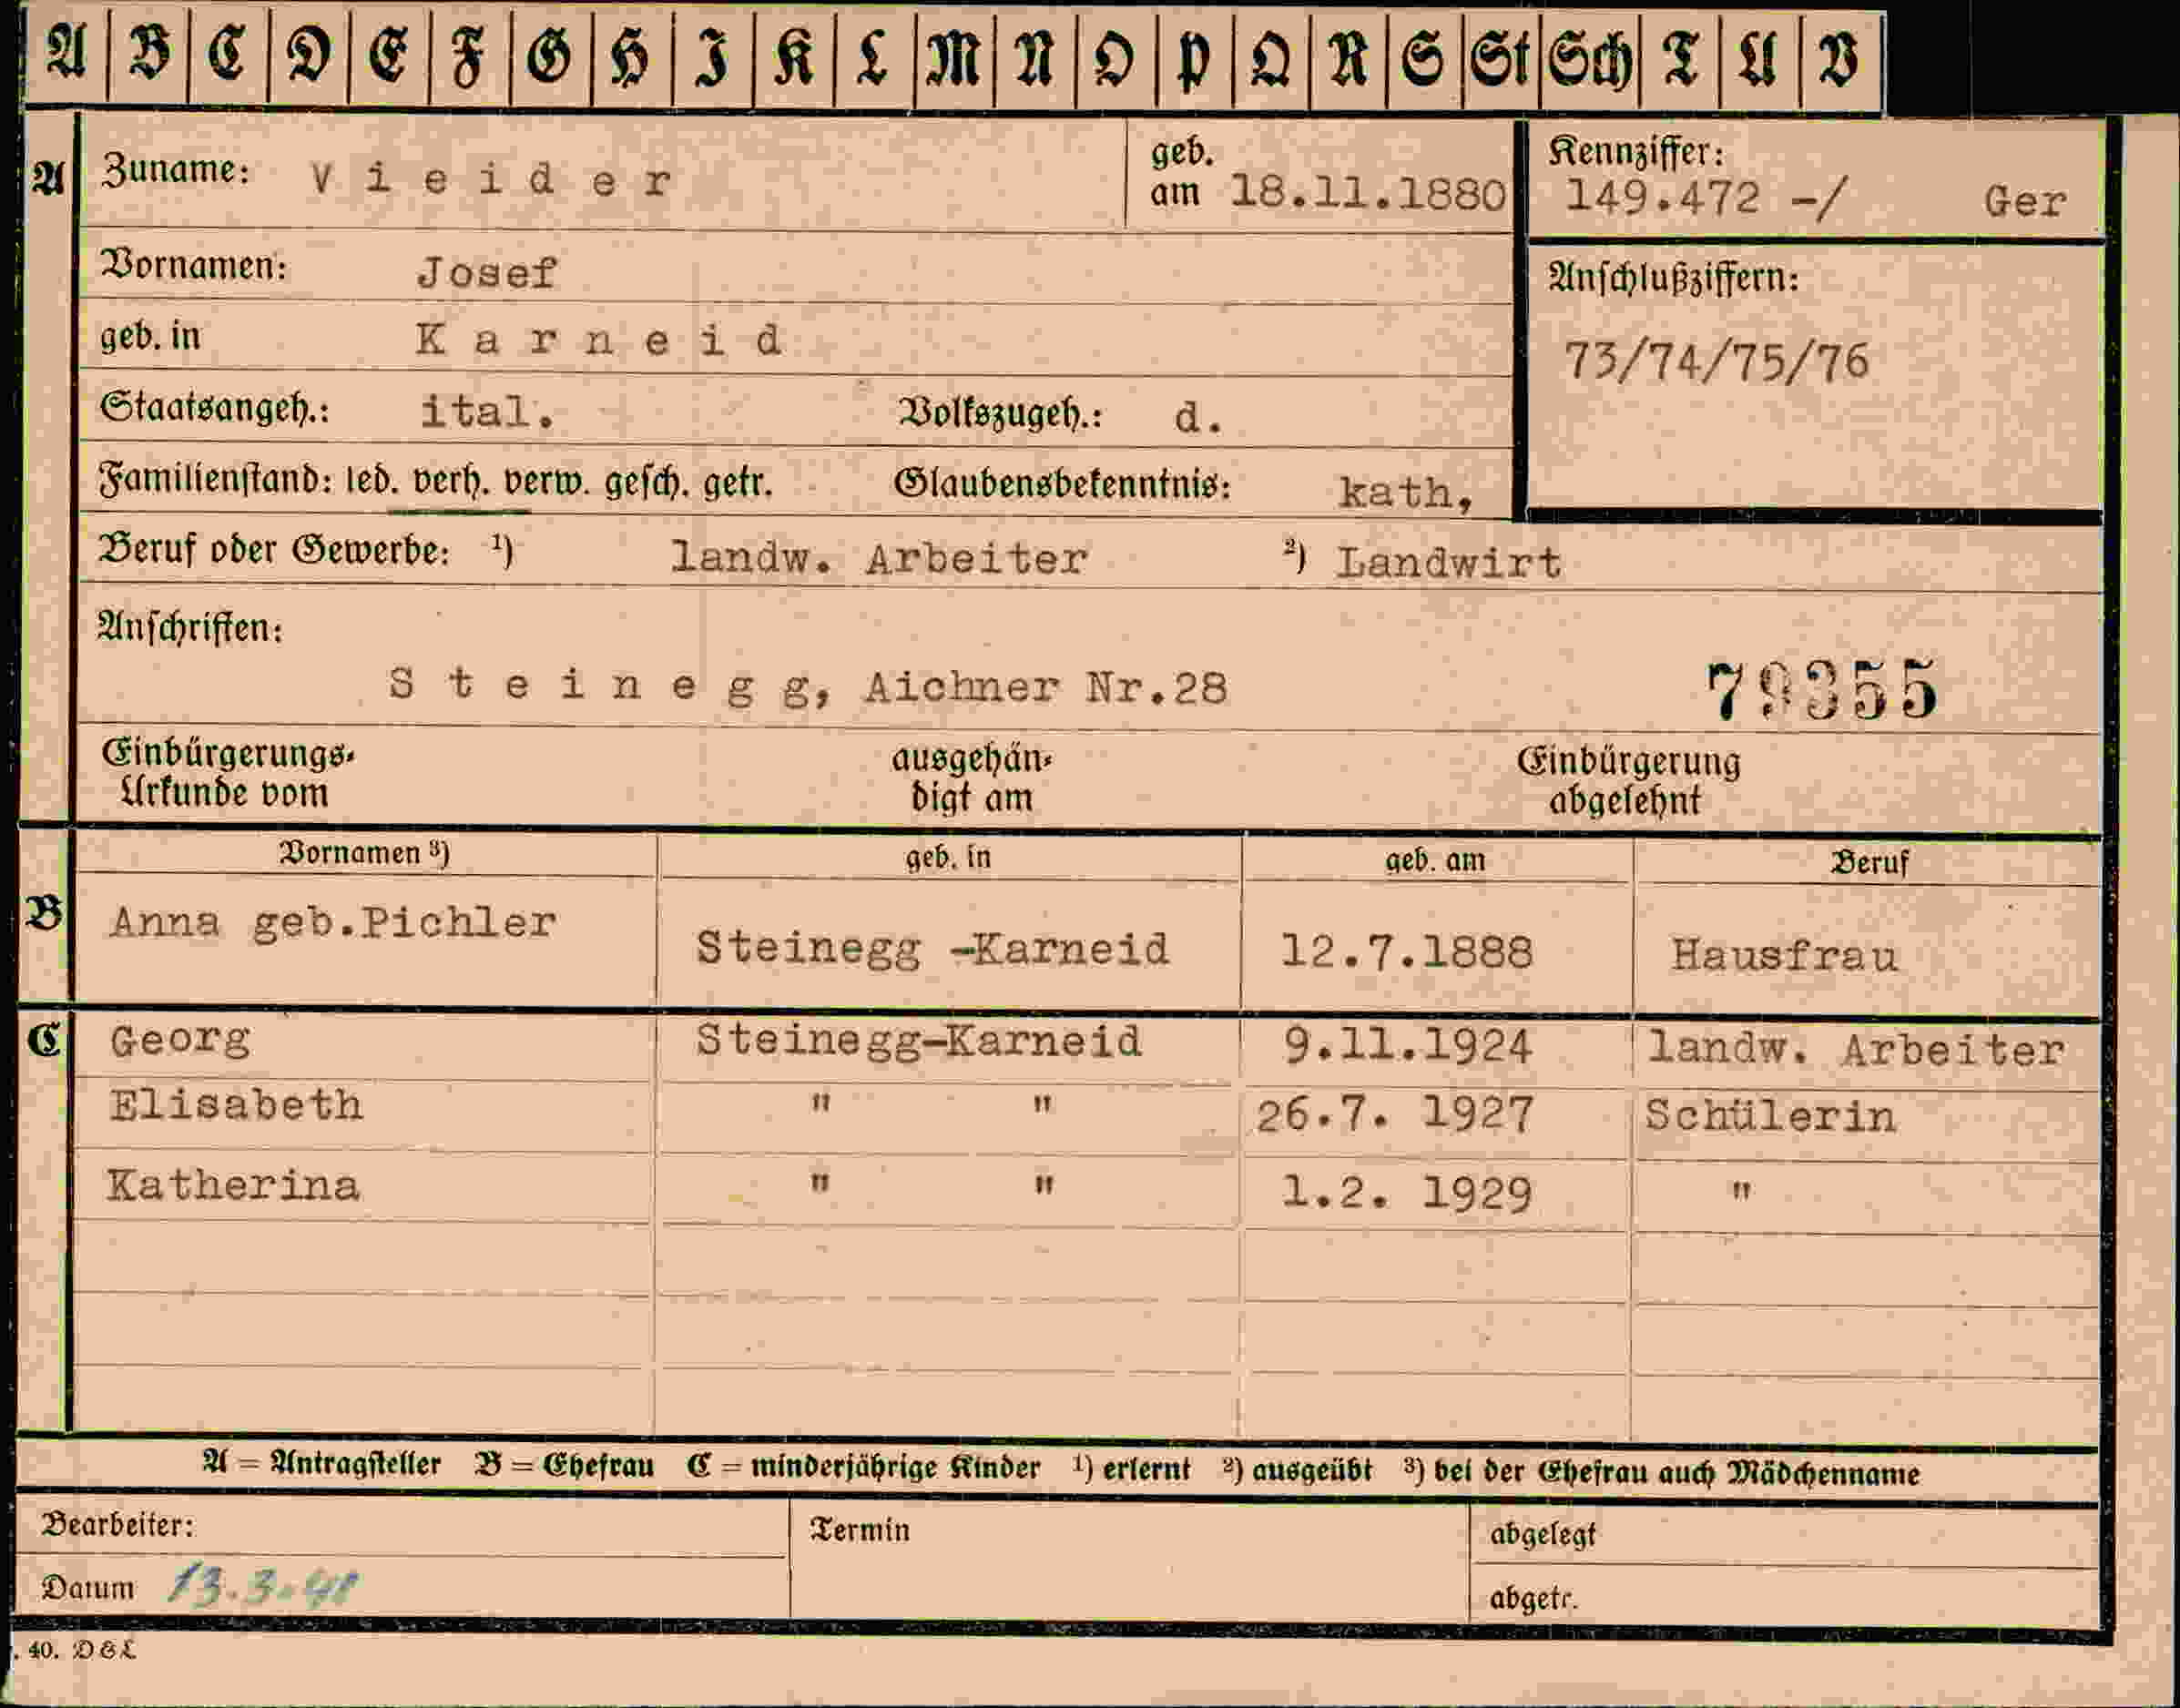 A B C D E F G H I K L M N O P Q R S St Sch T U V
A Zuname: V i e i d e r geb. am 18.11.1880
Kennziffer: 149.472 -/ Ger
Vornamen: Josef
Anschlußziffern: 73/74/75/76
geb. in K a r n e i d
Staatsangeh.: ital. Volkszugeh.: d.
Familienstand: led. verh. verw. gesch. getr. Glaubensbekenntnis: kath,
Beruf oder Gewerbe: ¹) landw. Arbeiter ²) Landwirt
Anschriften:
S t e i n e g g, Aichner Nr.28 79355
Einbürgerungs- ausgehän- Einbürgerung
Urkunde vom digt am abgelehnt
Vornamen ³) geb. in geb. am Beruf
B Anna geb.Pichler Steinegg -Karneid 12.7.1888 Hausfrau
C Georg Steinegg-Karneid 9.11.1924 landw. Arbeiter
Elisabeth " " 26.7. 1927 Schülerin
Katherina " " 1.2. 1929 "
A = Antragsteller B = Ehefrau C = minderjährige Kinder ¹) erlernt ²) ausgeübt ³) bei der Ehefrau auch Mädchenname
Bearbeiter: Termin abgelegt
Datum 13.3.41 abgetr.
. 40. D&L